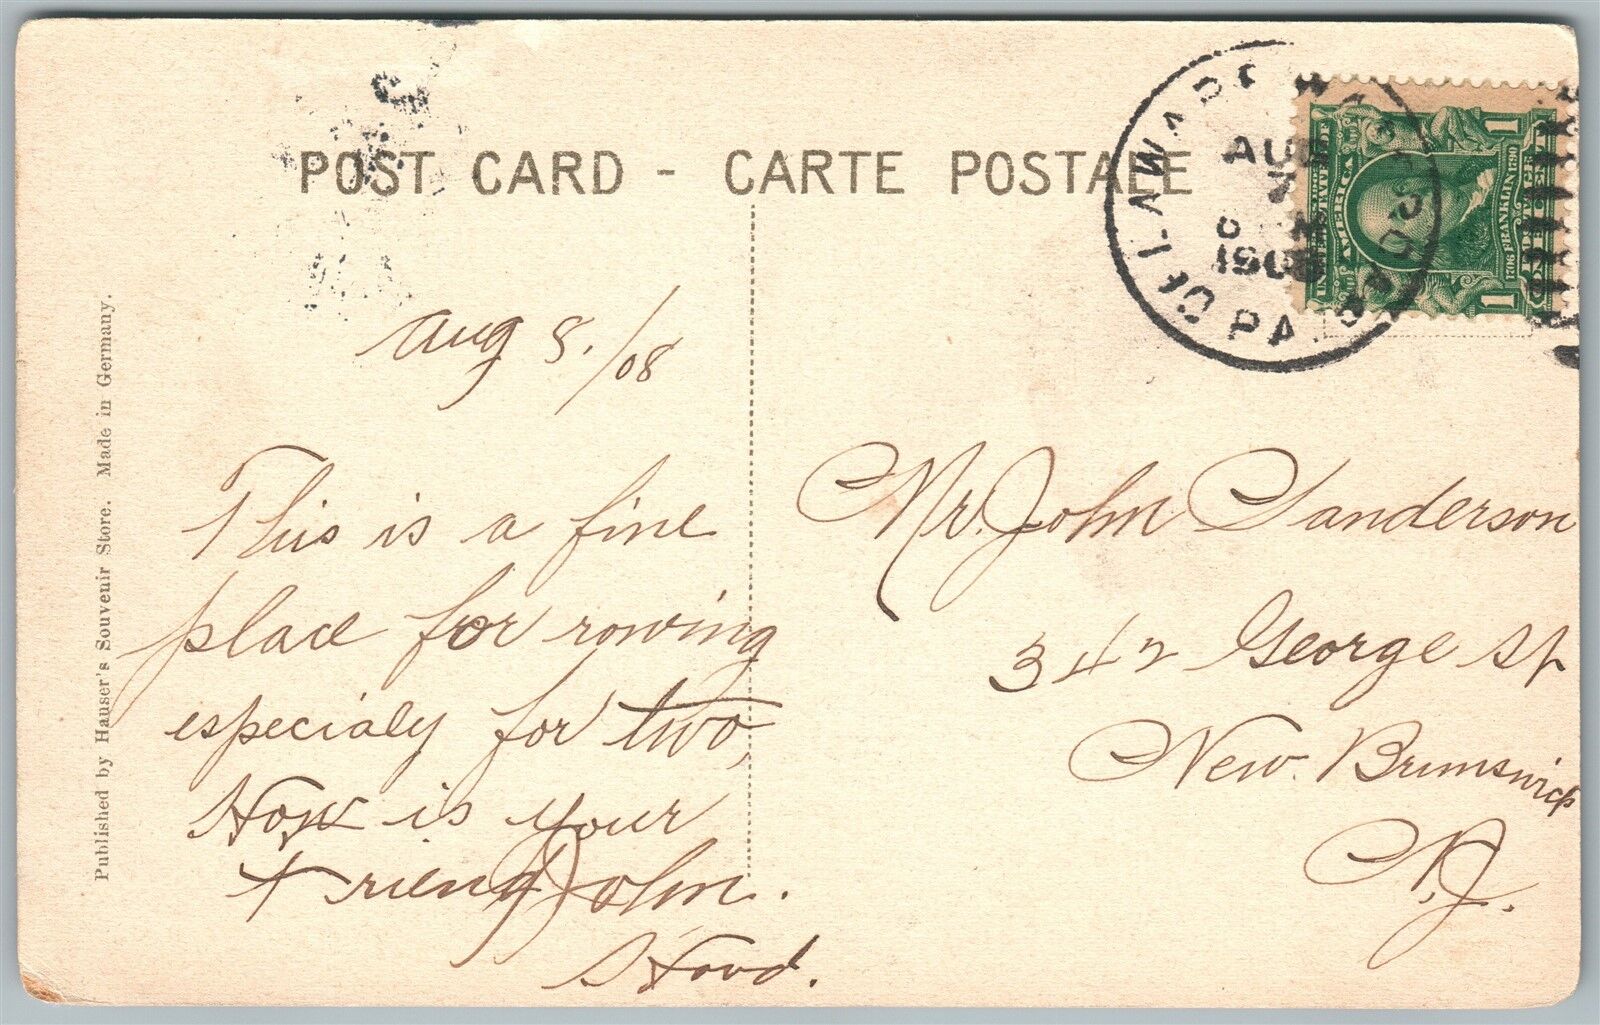 POST CARD - CARTE POSTALE
DELAWARE WATER GAP
PA.
AUG
7
190
UNITED STATES OF
AMERICA
1706 FRANKLIN 1790
ONE CENT
1
1
Aug 8./08
This is a fine
place for rowing
especialy for two,
How is your
friend John.
Hood.
Mr. John Sanderson
342 George St
New Brunswick
N.J.
Published by Hauser's Souvenir Store. Made in Germany.